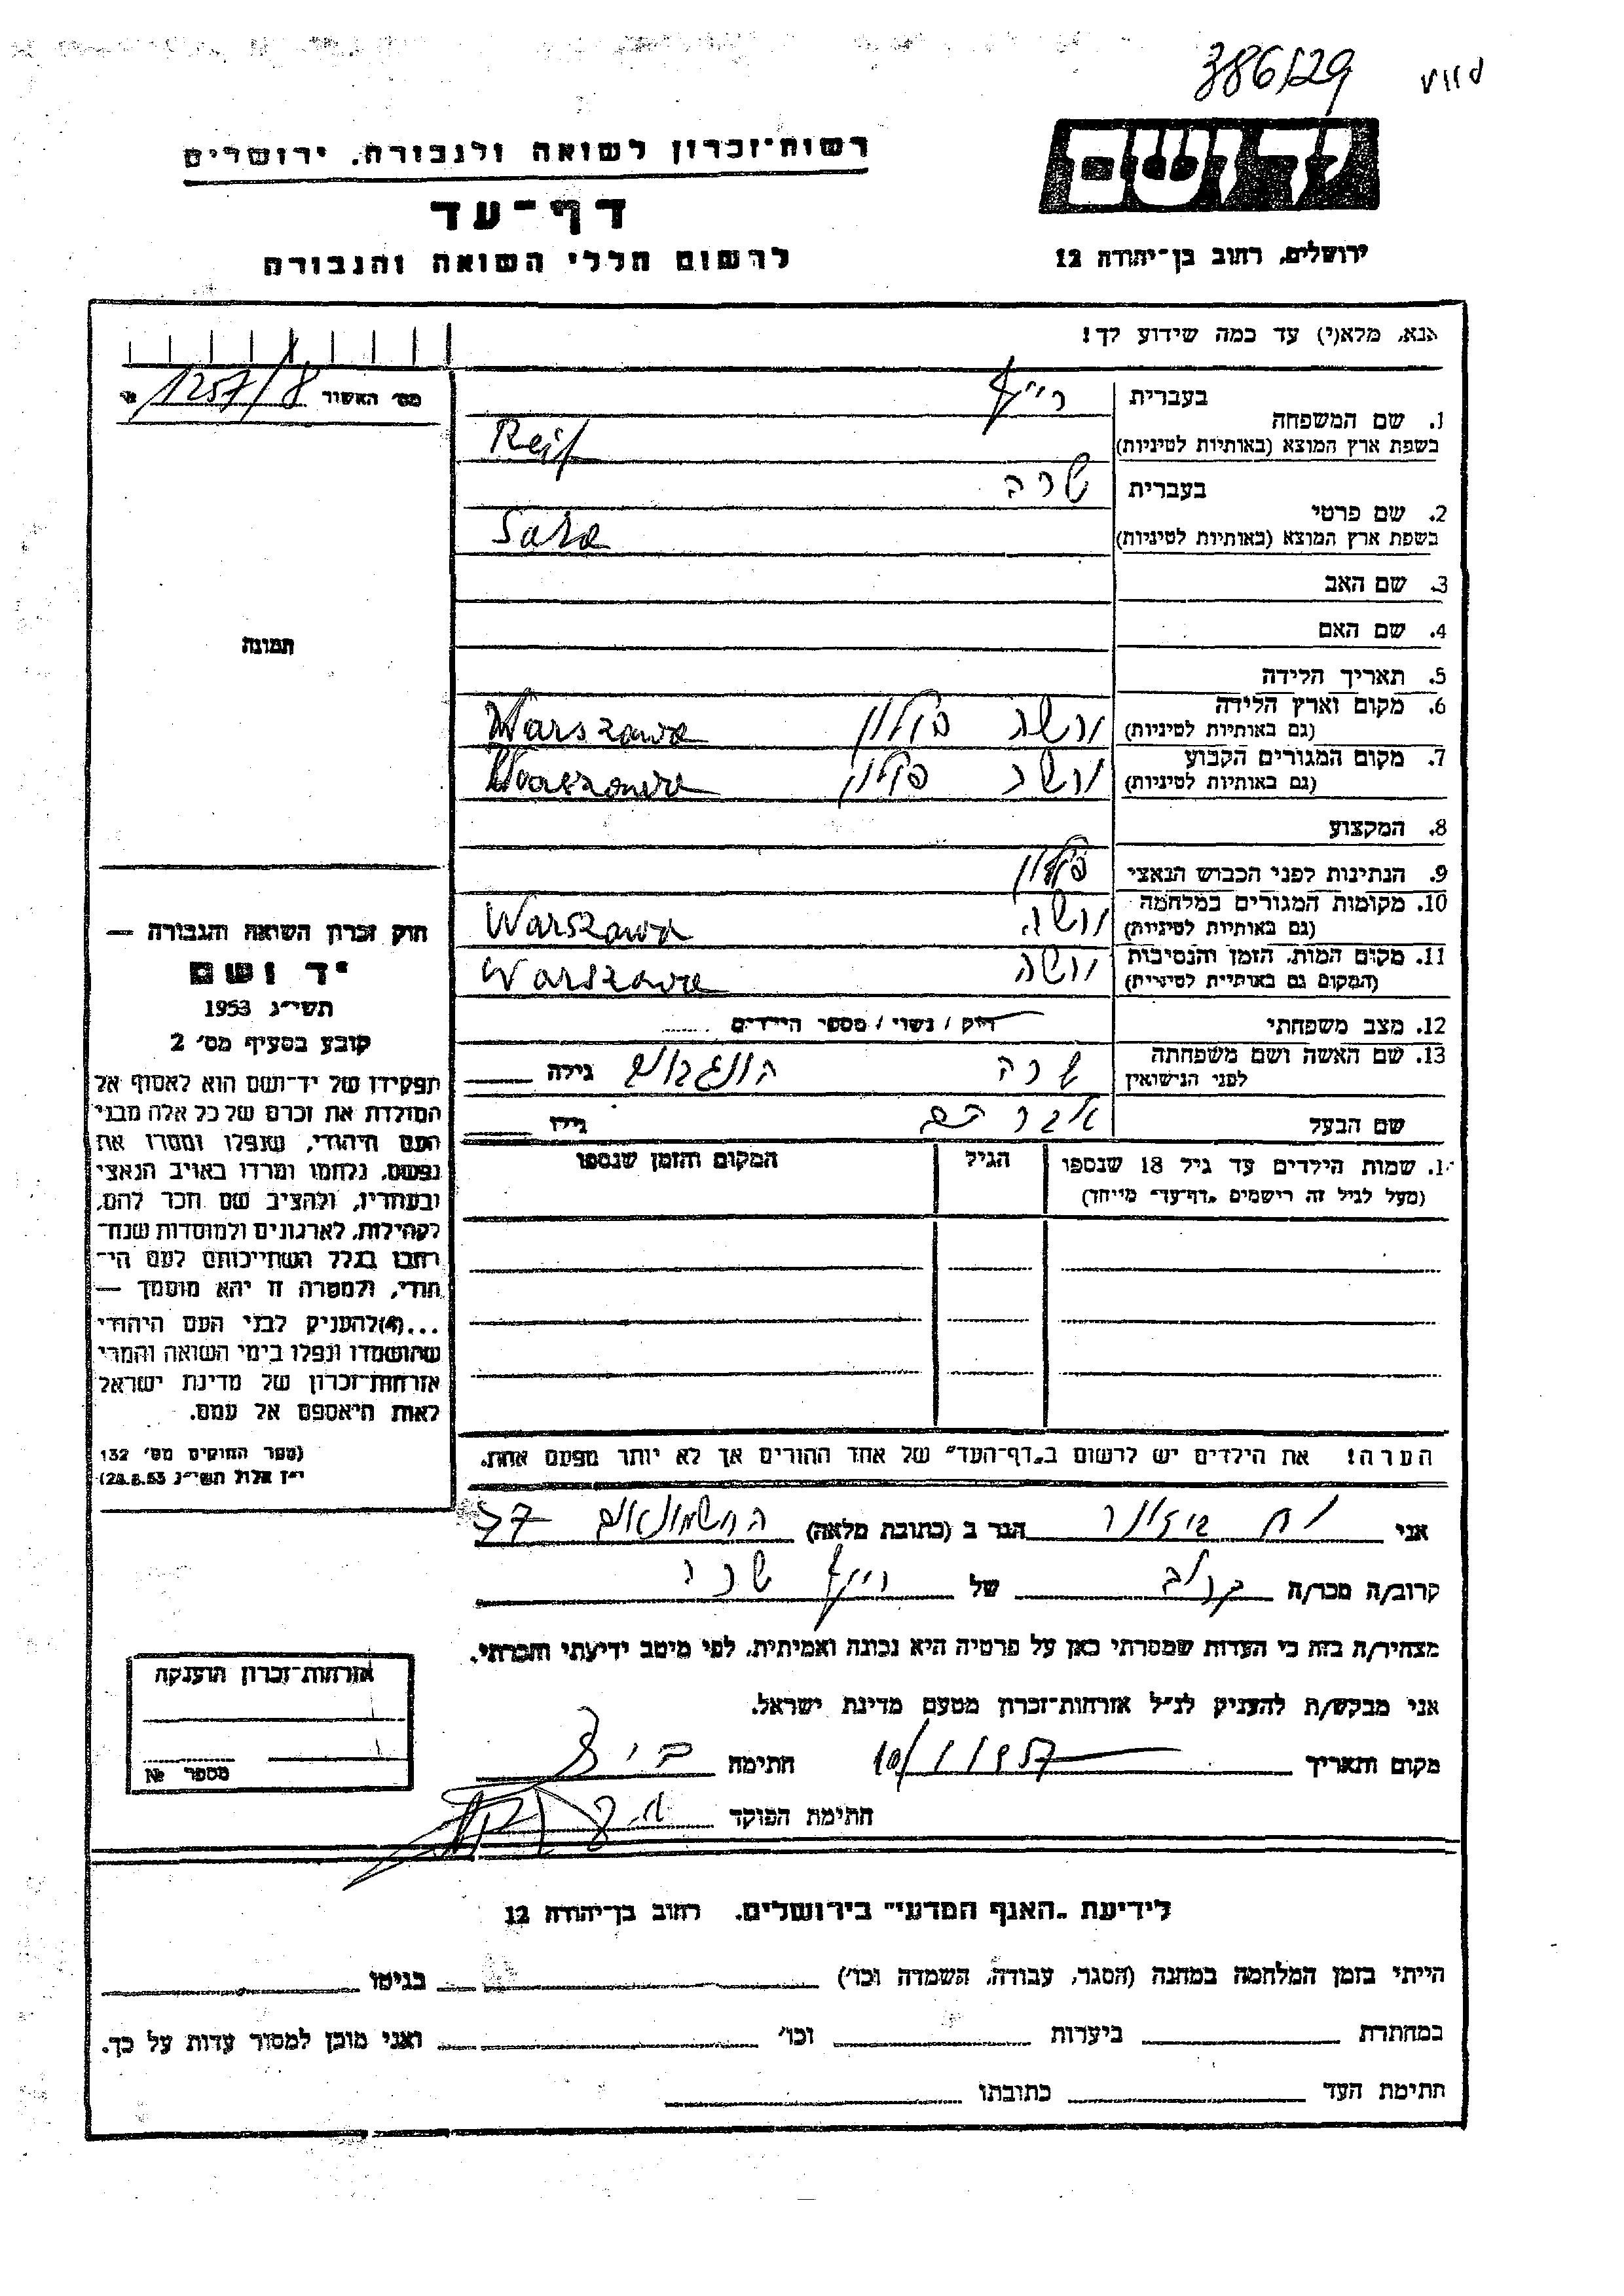 386/29
רשות־זכרון לשואה ולגבורה, ירושלים
דף־עד
לרשום חללי השואה והגבורה
יד ושם
ירושלים, רחוב בן־יהודה 12
אנא, מלא(י) עד כמה שידוע לך!
מס׳ האשור 1257/8
1. שם המשפחה
בעברית רייף
בשפת ארץ המוצא (באותיות לטיניות) Reif
2. שם פרטי
בעברית שרה
בשפת ארץ המוצא (באותיות לטיניות) Sara
3. שם האב
4. שם האם
5. תאריך הלידה
6. מקום וארץ הלידה
(גם באותיות לטיניות) ורשה פולין Warszawa
7. מקום המגורים הקבוע
(גם באותיות לטיניות) ורשה פולין Warszawa
8. המקצוע
9. הנתינות לפני הכבוש הנאצי פולין
10. מקומות המגורים במלחמה
(גם באותיות לטיניות) ורשה Warszawa
11. מקום המות, הזמן והנסיבות
(המקום גם באותיות לטיניות) ורשה Warszawa
12. מצב משפחתי רווק / נשוי / מספר הילדים
13. שם האשה ושם משפחתה
לפני הנישואין שרה גילה
שם הבעל גילו
שמות הילדים עד גיל 18 שנספו
(מעל לגיל זה רישמים „דף־עד״ מייחד)
הגיל
המקום והזמן שנספו
הערה! את הילדים יש לרשום ב„דף־העד״ של אחד ההורים אך לא יותר מפעם אחת.
תמונה
חוק זכרון השואה והגבורה —
יד ושם
תשי״ג 1953
קובע בסעיף מס׳ 2
תפקידו של יד־ושם הוא לאסוף אל
המולדת את זכרם של כל אלה מבני
העם היהודי, שנפלו ומסרו את
נפשם, נלחמו ומרדו באויב הנאצי
ובעוזריו, ולהציב שם וזכר להם,
לקהילות, לארגונים ולמוסדות שנח־
רבו בגלל השתייכותם לעם הי־
הודי, ולמטרה זו יהא מוסמך —
...(4)להעניק לבני העם היהודי
שהושמדו ונפלו בימי השואה והמרי
אזרחות־זכרון של מדינת ישראל
לאות היאספם אל עמם.
(ספר החוקים מס׳ 132
י״ז אלול תשי״ג 28.8.53)
אני הגר ב (כתובת מלאה) החשמונאים
קרוב/ה מכר/ה קרוב של רייף שרה
מצהיר/ה בזה כי העדות שמסרתי כאן על פרטיה היא נכונה ואמיתית, לפי מיטב ידיעתי והכרתי.
אני מבקש/ת להעניק לנ״ל אזרחות־זכרון מטעם מדינת ישראל.
מקום ותאריך 10/1 1957 חתימה
חתימת הפוקד
אזרחות־זכרון הוענקה
מספר №
לידיעת „האגף המדעי״ בירושלים, רחוב בן־יהודה 12
הייתי בזמן המלחמה במחנה (הסגר, עבודה, השמדה וכו׳) בגיטו
במחתרת ביערות וכו׳ ואני מוכן למסור עדות על כך.
חתימת העד כתובתו